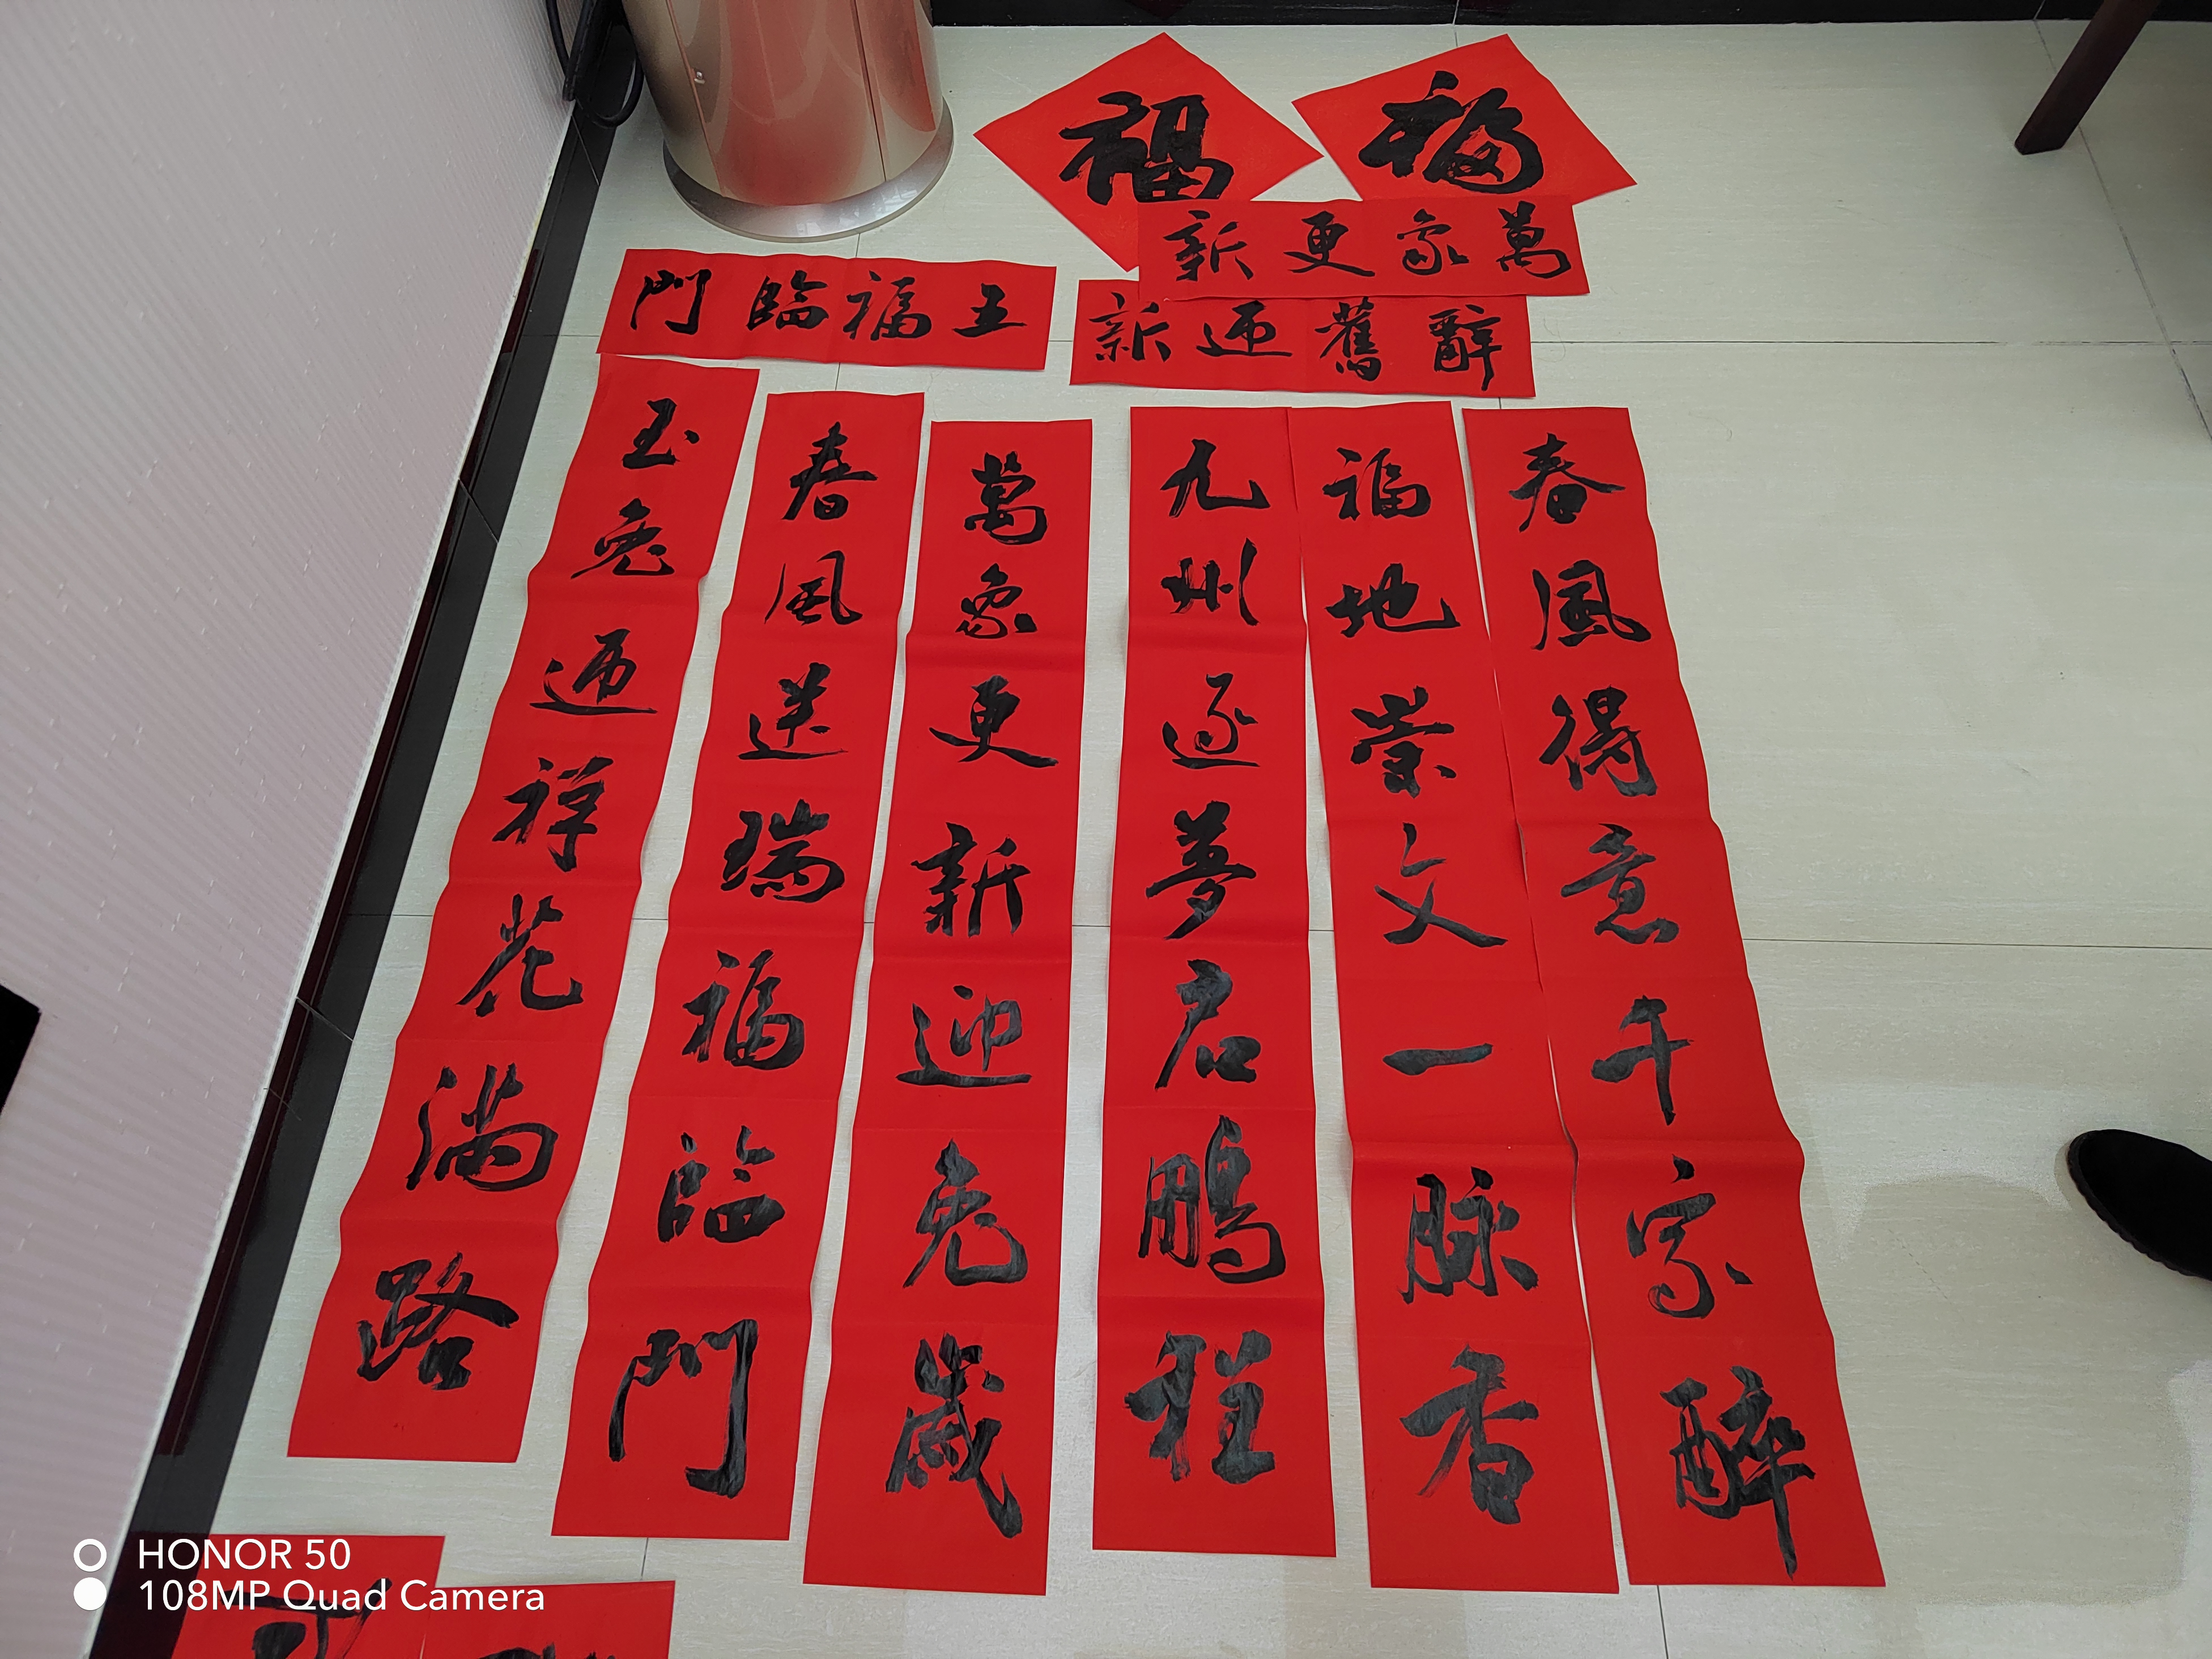 福
福
萬象更新
五福臨門
辭舊迎新
春風得意千家醉
福地崇文一脉香
九州逐夢启鵬程
萬象更新迎兔歲
春風送瑞福臨門
玉兔迎祥花满路
HONOR 50
108MP Quad Camera